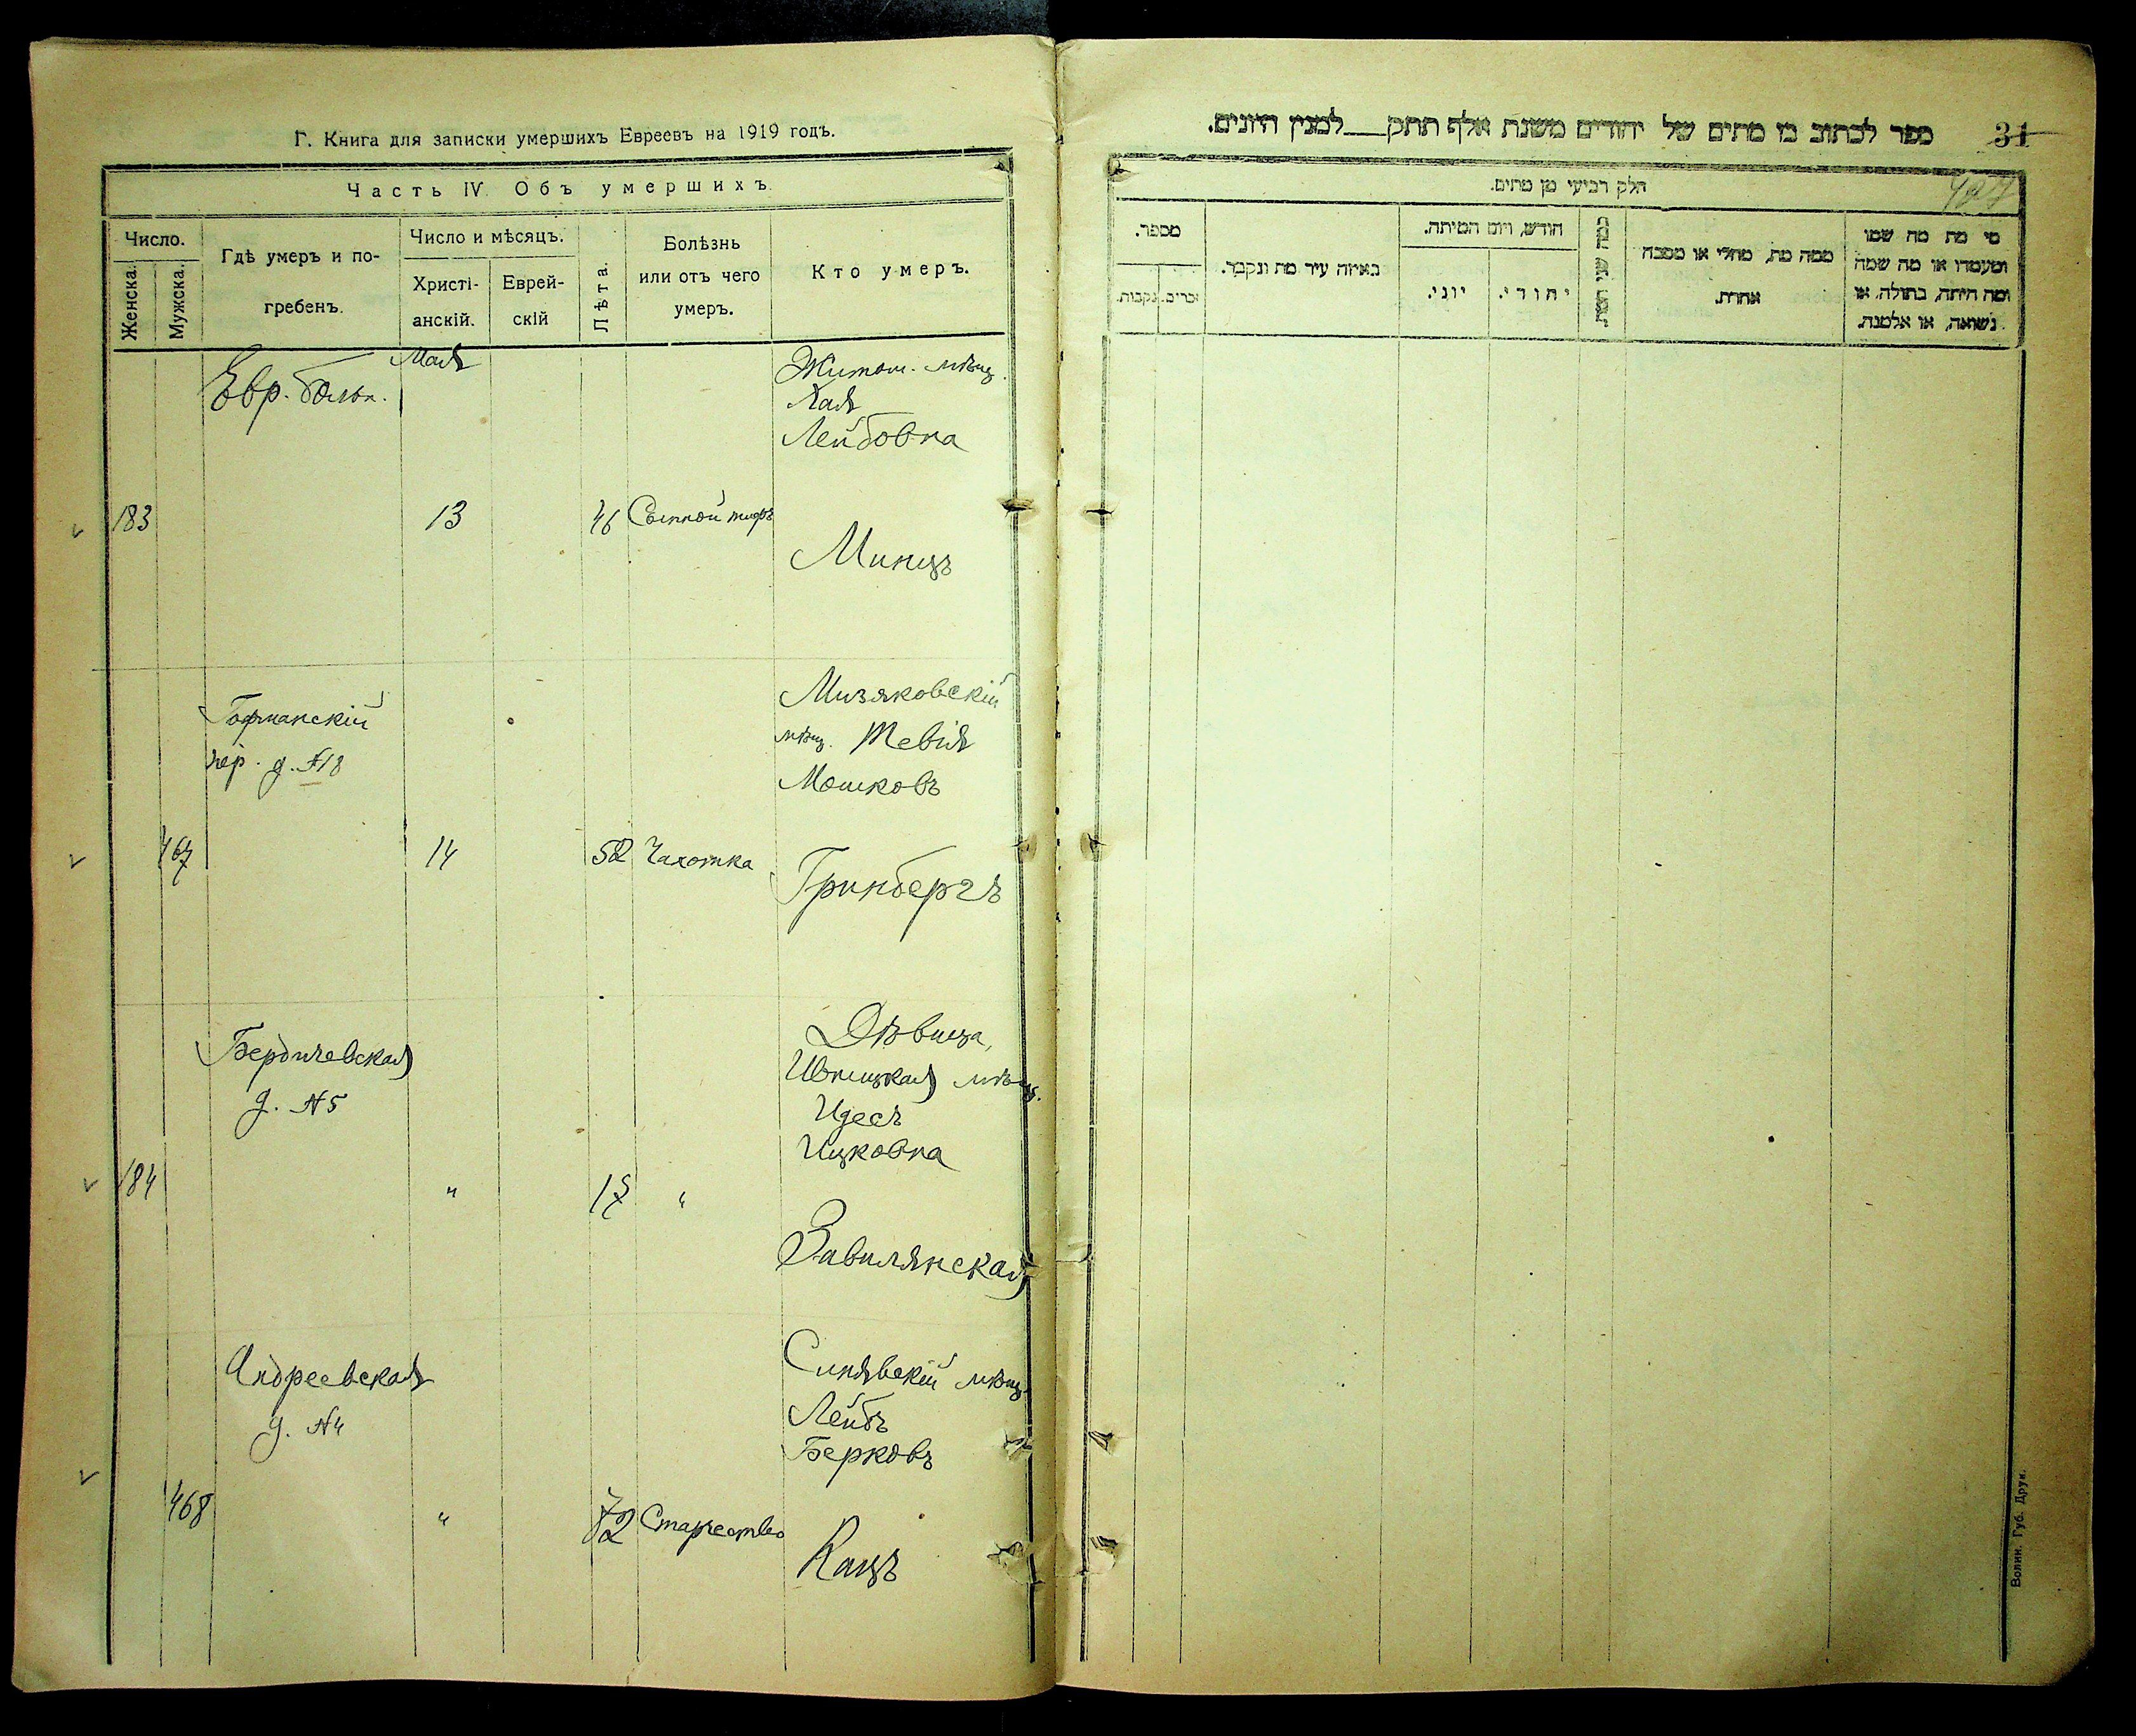 Г. Книга для записки умершихъ Евреевъ на 1919 годъ.
Часть IV. Объ умершихъ.
Число.
Женска.
Мужска.
Гдѣ умеръ и по-
гребенъ.
Число и мѣсяцъ.
Христі-
анскій.
Еврей-
скій
Лѣта.
Болѣзнь
или отъ чего
умеръ.
Кто умеръ.
Мая
Евр. больн.
Житом. мѣщ.
Хая
Лейбовна
183
13
46
Сыпной тифъ
Минцъ
Гофманскій
пер. д. №18
Мизяковскій
мѣщ. Тевія
Мошковъ
467
14
52
Чахотка
Гринбергъ
Бердичевская
д. №5
Дѣвица,
Ивницкая мѣщ.
Идесъ
Ицковна
184
"
"
Завилянская
Андреевская
д. №4
Синявскій мѣщ.
Лейбъ
Берковъ
468
"
72
Старчество
Кацъ
ספר לכתוב בו מתים של יהודים משנת אלף תתק___למנין היונים.
31
חלק רביעי מן מתים.
מספר.
זכרים.
נקבות.
באיזה עיר מת ונקבר.
חודש, ויום המיתה.
יוני.
יהודי.
כמה שני המת
ממה מת, מחלי או מסבה
אחרת.
מי מת מה שמו
ומעמדו או מה שמה
ומה היתה, בתולה, או
נשואה, או אלמנה.
Волин. Губ. Друк.